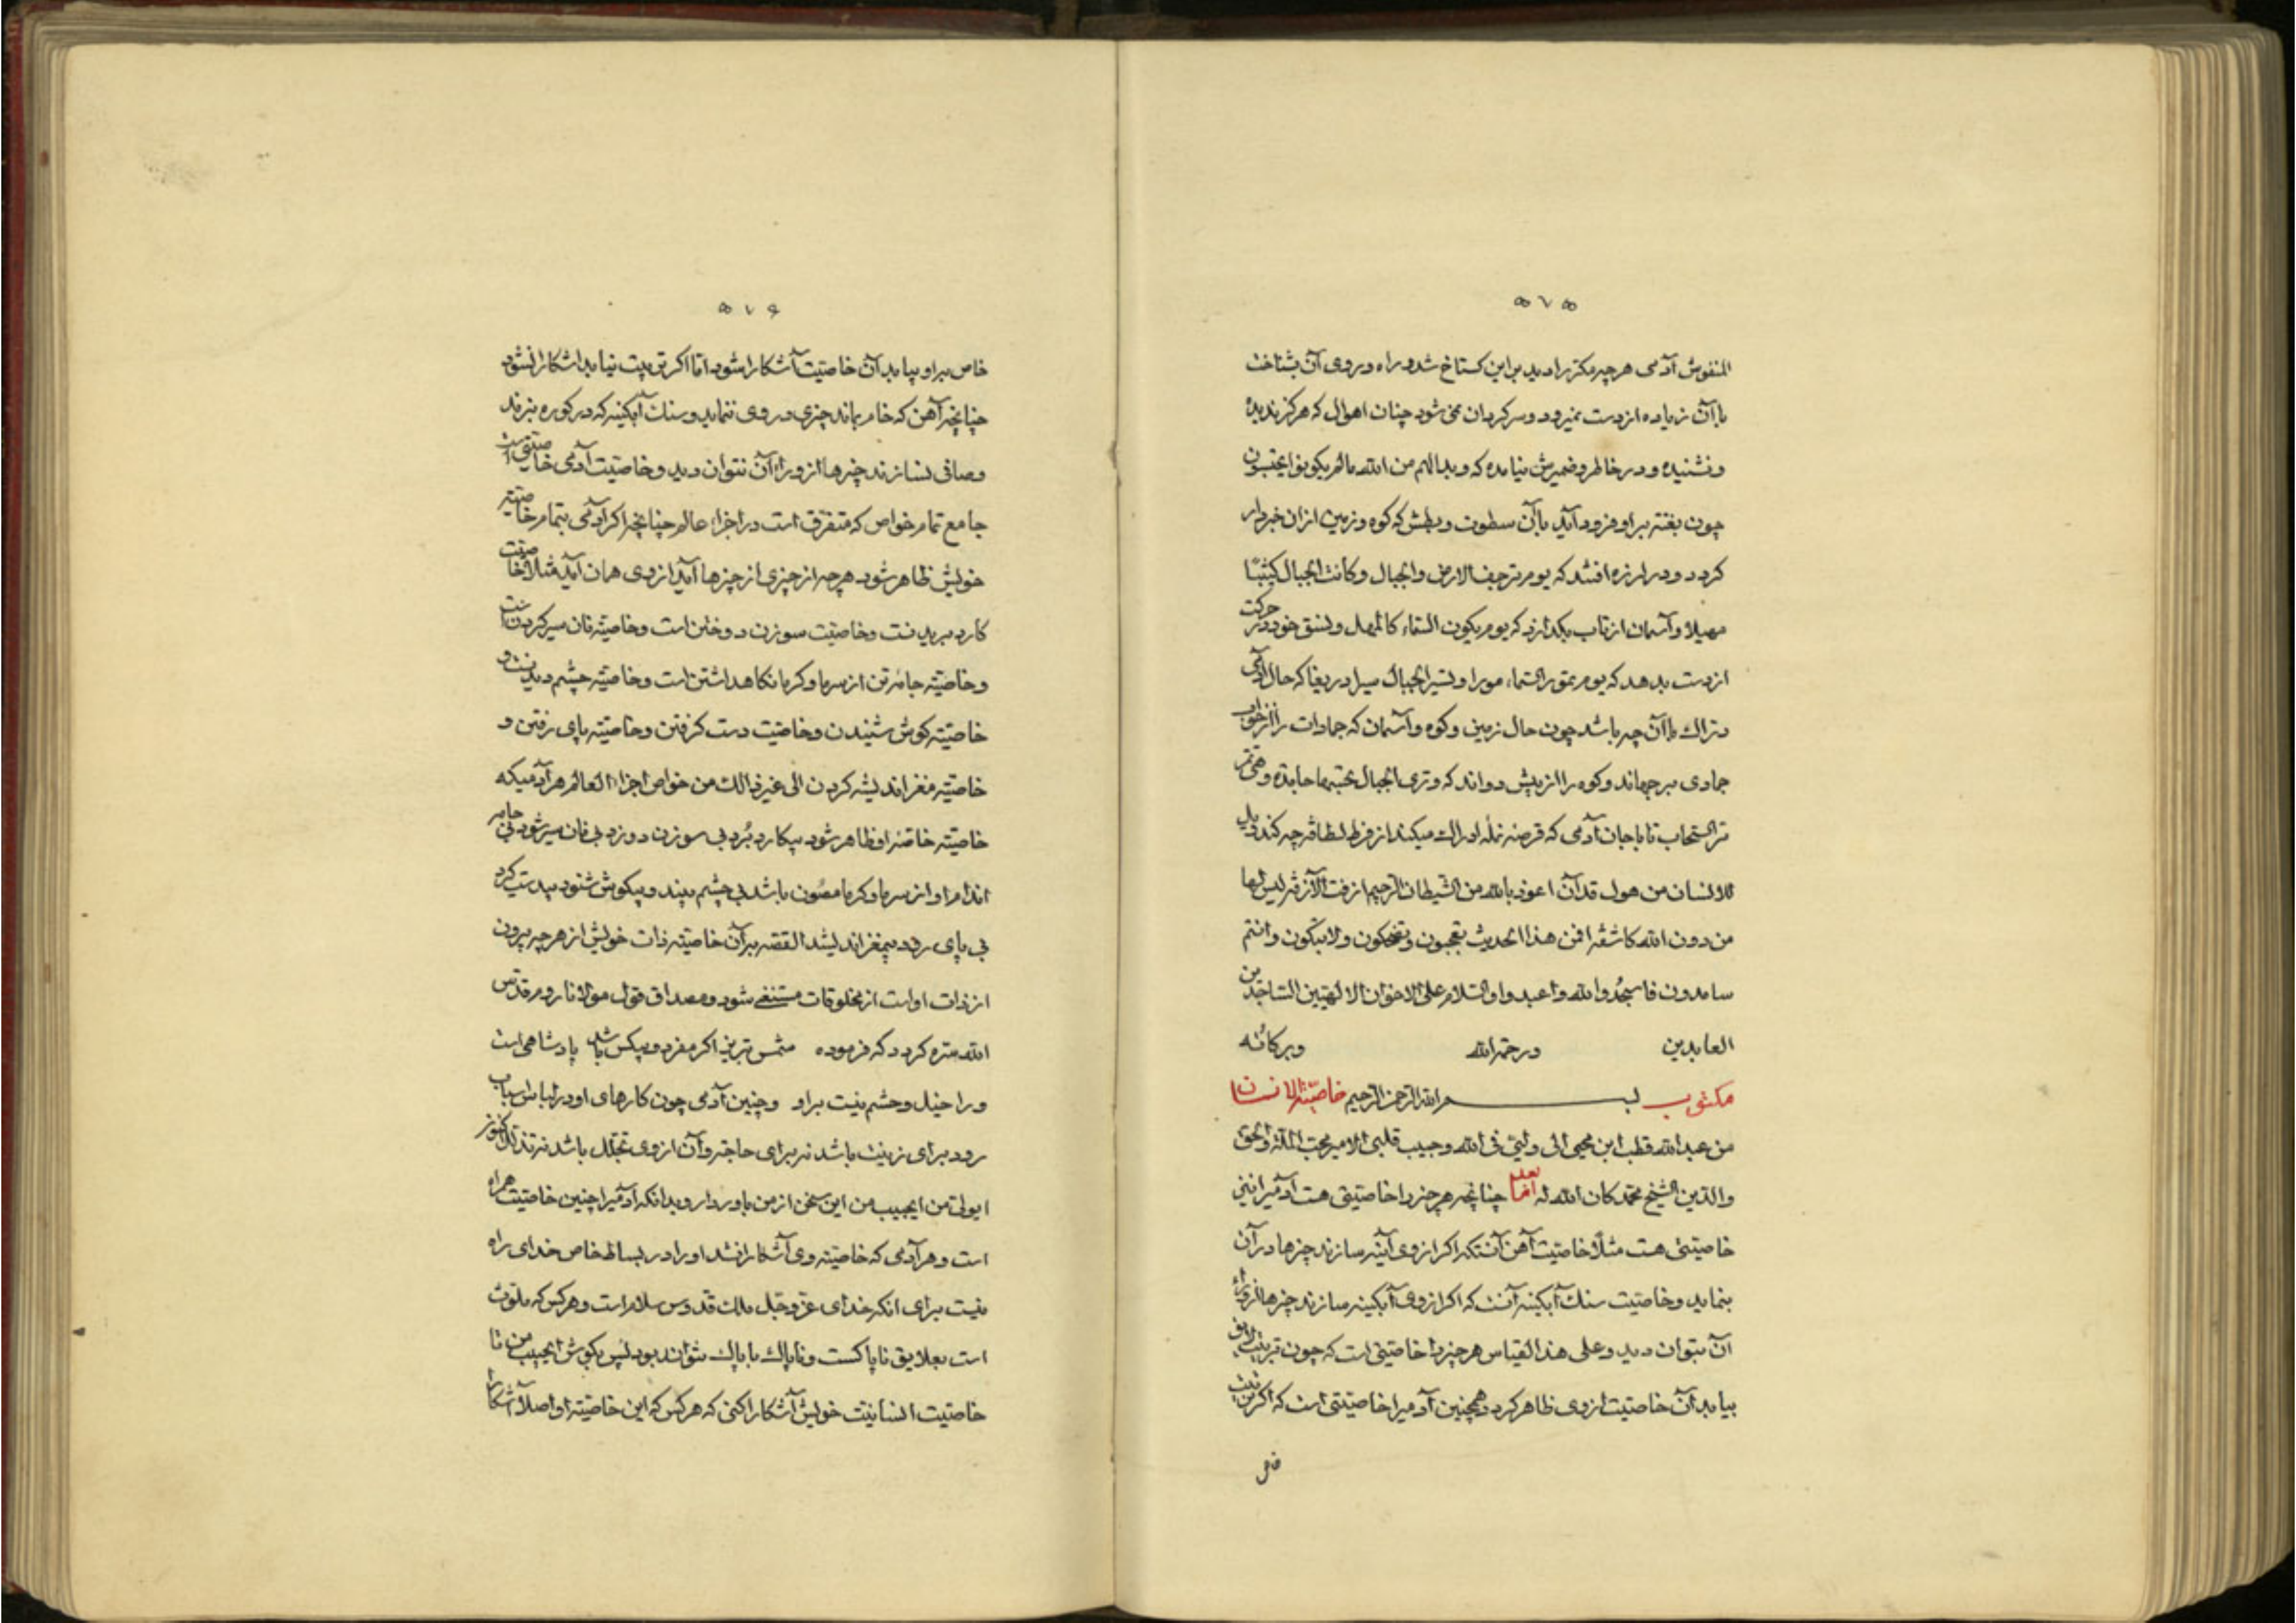 ۵۷۵
المنفوش آدمی هر چیز مکرّر را دید بر این کستاخ شد و راه در روی آن بشناخت
با آن زیاده از دست نمیرود و سرکردان نمی شود چنان اهوال که هرکز ندیده
و نشنیده و در خاطر و ضمیرش نیامده که و بدا لهم من الله مالم یکونوا یحتسبون
چون بغتة بر او فرود آید با آن سطوت و بطش که کوه و زمین از ان خبردار
کردد و در لرزه افتد که یوم ترجف الارض و الجبال و کانت الجبال کثیبًا
مهیلا و آسمان از تاب بکدازد که یوم یکون السماء کالمهل و نسق خود در حرکت
از دست بدهد که یوم تمور السماء مورا و تسیر الجبال سیرا دریغا که حال آدمی
در آن چه باشد چون حال زمین و کوه و آسمان که جمادات را از خواب
جمادی بر جهاند و کوه را از پیش دواند که و تری الجبال تحسبها جامدة و هی تمر
مر السحاب تا با جان آدمی که قرصه نمله ادراک میکند از فرط لطافة چه کند ویل
للانسان من هول قد آن اعوذ بالله من الشیطان الرجیم ازفت الآزفة لیس لها
من دون الله کاشفة افمن هذا الحدیث تعجبون و تضحکون و لا تبکون و انتم
سامدون فاسجُدوا لله و اعبدوا و السلام علی الاخوان الالهیین الساجدین
العابدین و رحمة الله و برکاتُه
مکتوب بسم الله الرحمن الرحیم خاصیّة الانسان
من عبد الله قطب ابن محیی الی ولیّی فی الله و حبیب قلبی الامیر محب الملة و الحق
و الدین الشیخ محمد کان الله له امّا بعد چنانچه هر چیز را خاصیتی هست آدمیرا نیز
خاصیتی هست مثلًا خاصیت آهن آنستکه اکر از وی آینه سازند چیزها در آن
بنماید و خاصیت سنک آبکینه آنست که اکر از وی آبکینه سازند چیزها از وراء
آن بتوان دید و علی هذا القیاس هر چیز را خاصیتی است که چون تربیت لایق
بیابد آن خاصیت از وی ظاهر کردد همچنین آدمیرا خاصیتی است که اکر تربیت
خاص
۵۷۶
خاص بر او بیابد آن خاصیت آشکارا شود امّا اکر تربیت نیابد اشکارا نشود
چنانچه آهن که خام بماند چیزی در وی ننماید و سنک آبکینه که در کوره نبرند
و صافی نسازند چیزها از وراء آن نتوان دید و خاصیت آدمی خاصیتی است
جامع تمام خواص که متفرّق است در اجزاء عالم چنانچه اکر آدمی بتمام خاصیّة
خویش ظاهر شود هر چه از چیزی از چیزها آید از وی همان آید مثلا خاصیت
کارد بریدنست و خاصیّت سوزن دوختن است و خاصیّة نان سیر کردن است
و خاصیّة جامه تن از سرما و کرما نکاهداشتن است و خاصیّة چشم دیدنست و
خاصیّة کوش شنیدن و خاصیّت دست کرفتن و خاصیّة پای رفتن و
خاصیّة مغز اندیشه کردن الی غیر ذالک من خواص اجزاء العالم هر آدمیکه
خاصیّة خاصّه او ظاهر شود بیکارد بُرد بی سوزن دوزد بی نان سیر شود بی جامه
اندام او از سرما و کرما مصُون باشد بی چشم بیند و بیکوش شنود بیدست کیرد
بی پای رود بیمغز اندیشد القصه بر آن خاصیّة ذات خویش از هر چه بیرون
از ذات اوست از مخلوقات مستغنی شود و مصداق قول مولانا روم قدّس
الله سرّه کردد که فرموده شمس تبریز اکر مفرد و بیکس باشد پادشاهی است
و را خیل و حشم نیست بر او و چنین آدمی چون کارهای او در لباس اسباب
رود برای زینت باشد نه برای حاجة و آن از وی تجمّل باشد نه تذلّل
ایولیّ من ایحبیب من این سخن از من باور دار و بدانکه آدمیرا چنین خاصیّت همراه
است و هر آدمی که خاصیّة وی آشکارا نشد او را در بساط خاص خدای راه
نیست برای انکه خدای عزّ و جّل ملک قدوس سلام است و هر کس که ملوّث
است بعلایق ناپاکست و ناپاک با پاک نتواند بود پس بکوش ایحبیب من تا
خاصیّت انسانیّت خویش آشکارا کنی که هر کس که این خاصیّة او اصلا آشکارا